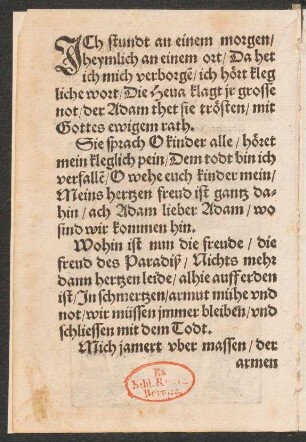 ICh stundt an einem morgen/
heymlich an einem ort/ Da het
ich mich verborgẽ/ ich hört kleg
liche wort/ Die Heua klagt jr grosse
not/ der Adam thet sie trösten/ mit
Gottes ewigem rath.
Sie sprach O kinder alle/ höret
mein kleglich pein/ Dem todt bin ich
verfallẽ/ O wehe euch kinder mein/
Meins hertzen freud ist gantz da-
hin/ ach Adam lieber Adam/ wo
sind wir kommen hin.
Wohin ist nun die freude/ die
freud des Paradiß/ Nichts mehr
dann hertzen leide/ alhie auff erden
ist/ In schmertzen/ armut mühe vnd
not/ wir müssen jmmer bleiben/ vnd
schliessen mit dem Todt.
Mich jamert vber massen/ der
armen
Ex
Bibl. Regia
Berolin.